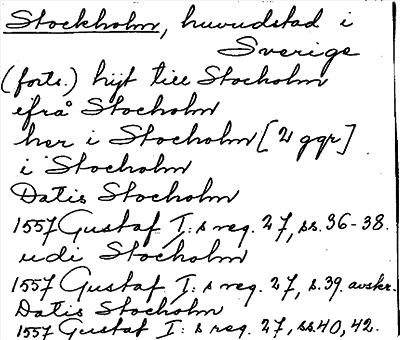 Stockholm, huvudstad i
Sverige
(forts.) hijt till Stocholm
efrå Stocholm
her i Stocholm [2 ggr]
i Stocholm
Datis Stocholm
1557 Gustaf I: s reg. 27, ss. 36-38.
udi Stocholm
1557 Gustaf I: s reg. 27, s. 39. avskr.
Datis Stocholm
1557 Gustaf I: s reg. 27, ss. 40, 42.